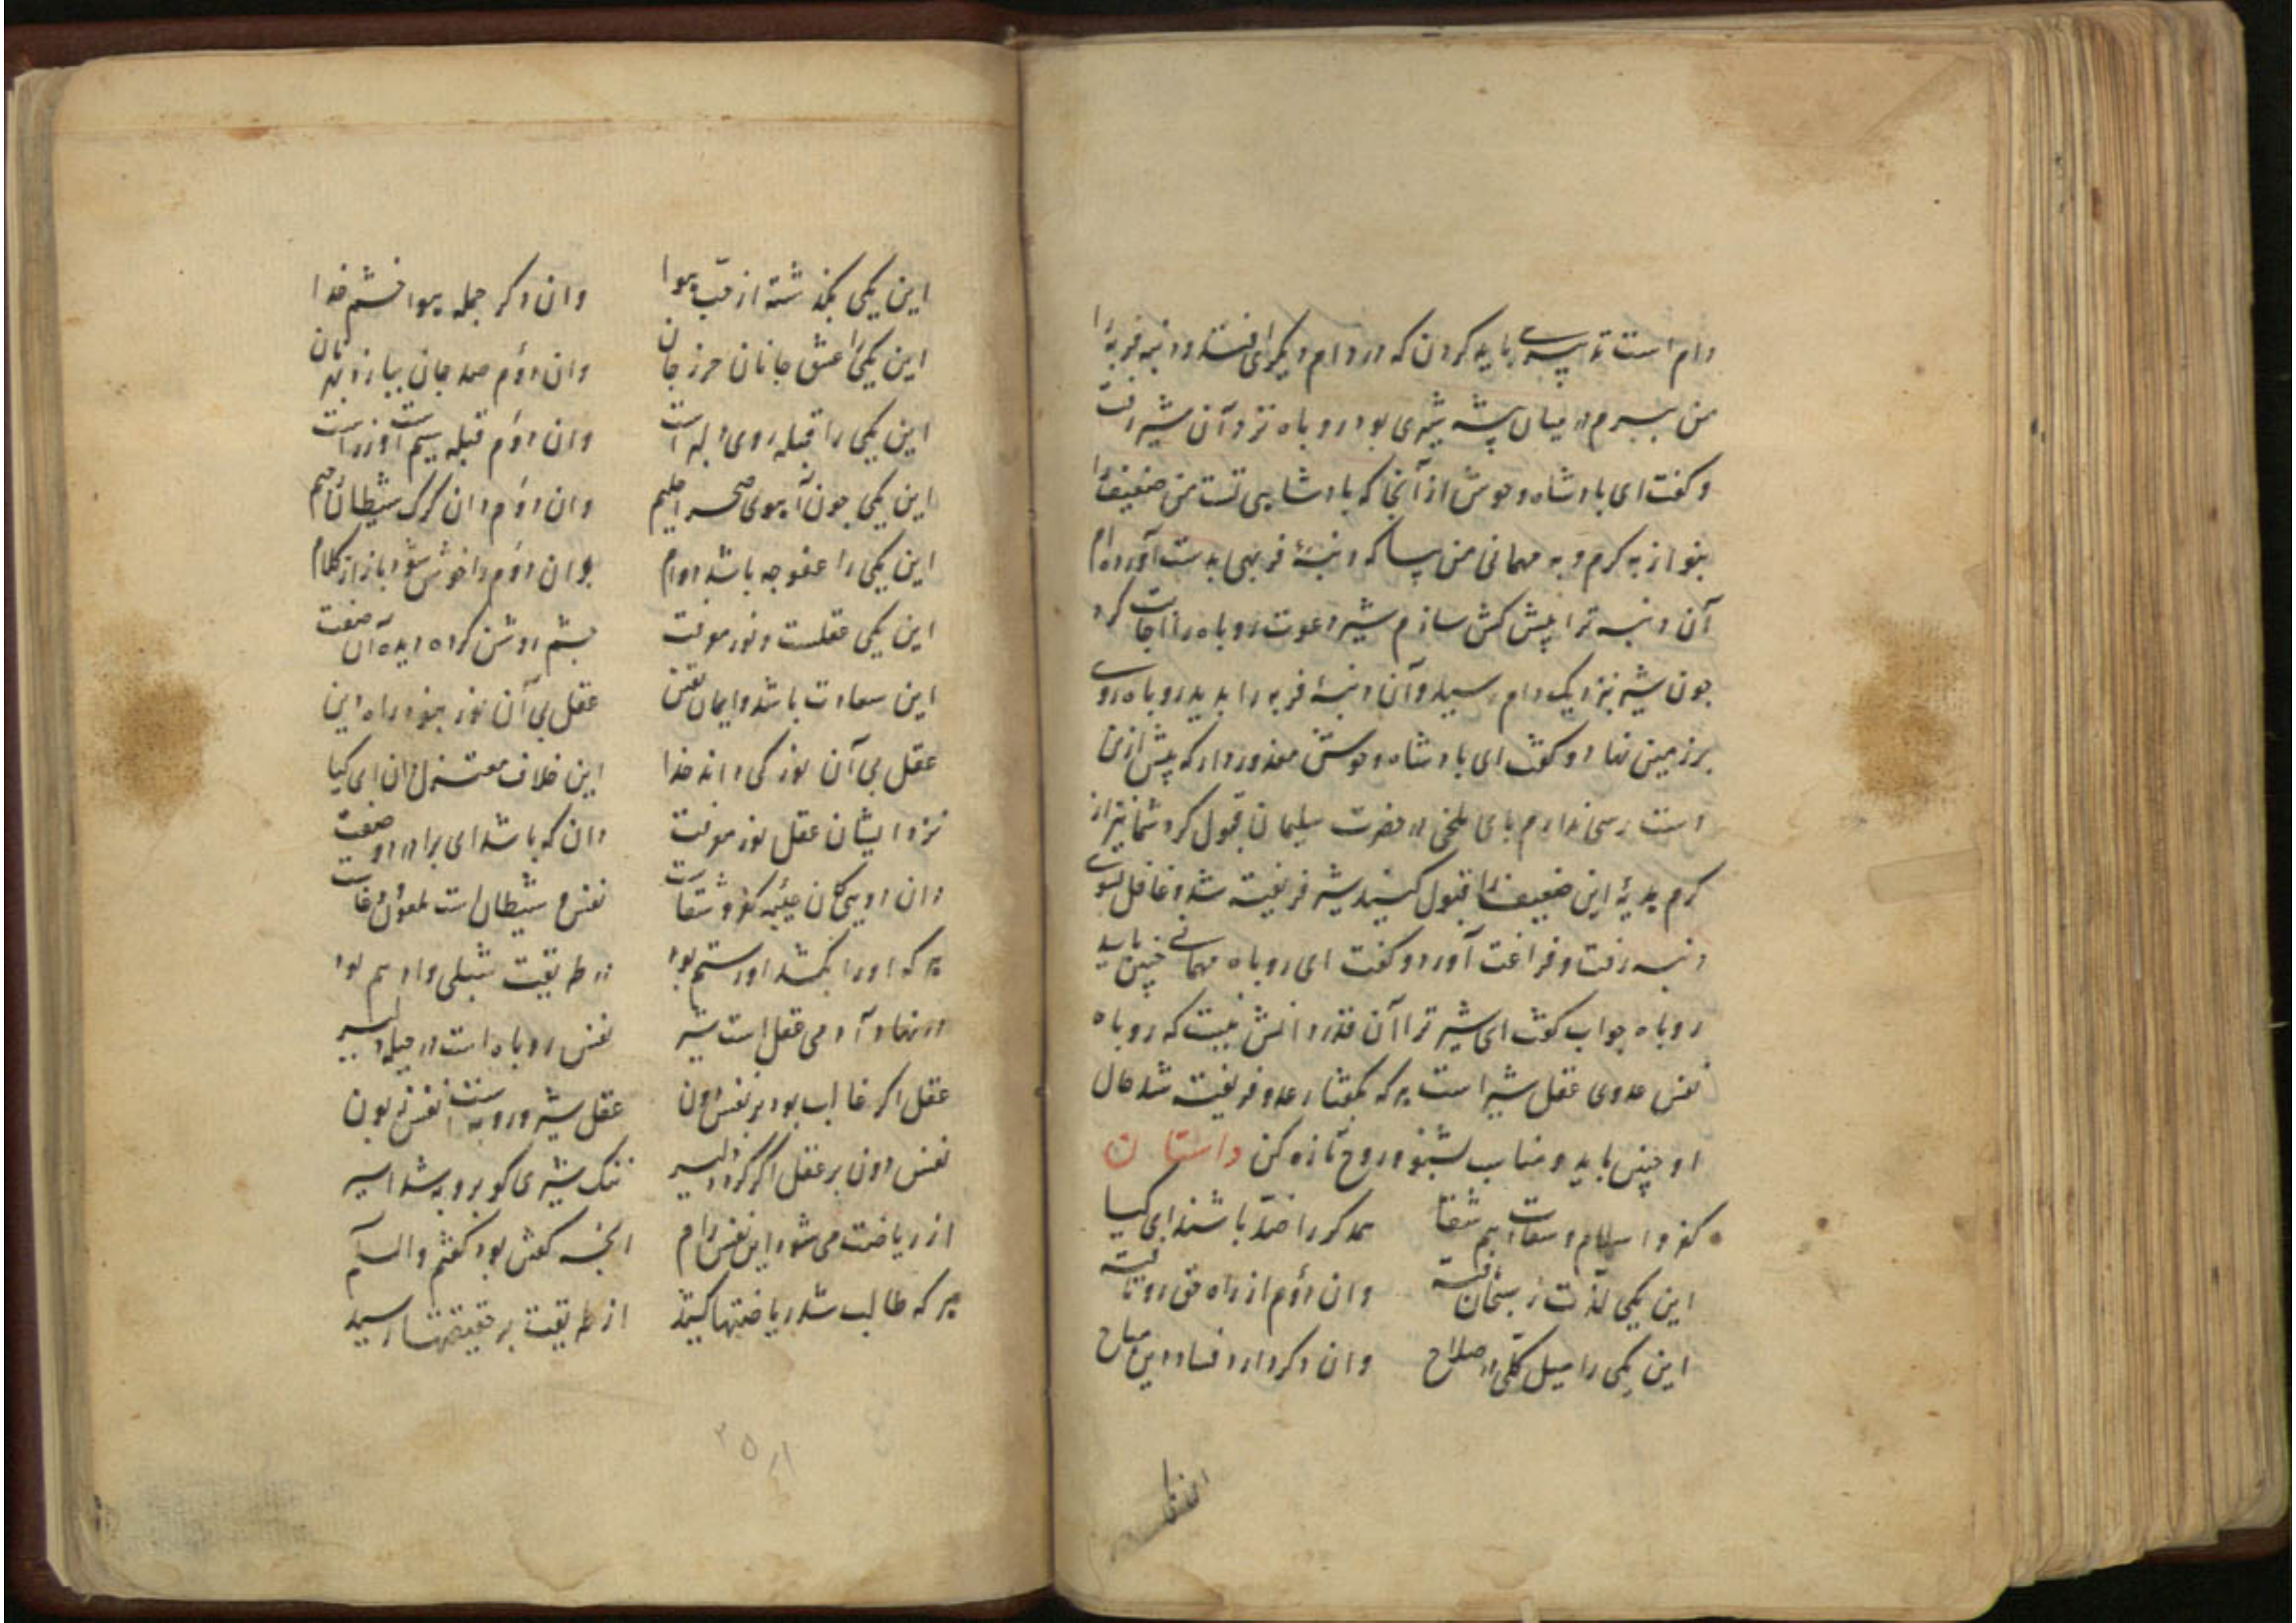 دام است تدبیری باید کردن که در دام دیگرای افتد و دنبه فربه را
من ببرم در میان بیشه شیری بود روباه نزد آن شیر رفت
و گفت ای پادشاه وحوش از آنجا که پادشاهی تست من ضعیف را
بنواز به کرم و به مهمانی من بیا که دنبهٔ فربهی بدست آورده‌ام
آن دنبه ترا پیش کش سازم شیر دعوت روباه را اجابت کرد
چون شیر بنزدیک دام رسید و آن دنبهٔ فربه را بدید روباه روی
بر زمین نهاد و گفت ای پادشاه وحوش معذور دار که پیش ازین
دست رسی ندارم پای ملخی در حضرت سلیمان قبول کرد شما نیز از
کرم هدیهٔ این ضعیف را قبول کنید شیر فریفته شد و غافل بسوی
دنبه رفت و فراغت آورد و گفت ای روباه مهمانی چنین باید
روباه جواب گفت ای شیر ترا آن قدر دانش نیست که روباه
نفس عدوی عقل شیر است هر که بگفتار عدو فریفته شد حال
او چنین باید و مناسب بشنو و روح تازه کن داستان
کفر و اسلام و سعادت هم شقا همدگر را ضد باشند ای کیا
این یکی لذت ز سبحان یافته وان دوم از راه حق رو تافته
این یکی را میل کلی در صلاح وان دگر دارد فساد دین مباح
این یکی بگذشته از حب هوا وان دگر جمله هوا خشم خدا
این یکی را عشق جانان حرز جان وان دوم صد جان ببازد بهر نان
این یکی را قبله روی دلبر است وان دوم قبله سیم است و زر است
این یکی چون آهوی صحرا حلیم وان دوم دان گرگ شیطان رجیم
این یکی را عفو چه باشد دوام وان دوم ناخوش شود باز از کلام
این یکی عقلست و نور معرفت چشم روشن کرده دیده آن صفت
این سعادت باشد و ایمان یقین عقل بی آن نور نبود راه این
عقل بی آن نور کی داند خدا این خلاف معتزل دان ای کیا
نزد ایشان عقل نور معرفت دان که باشد ای برادر دو صفت
وان دویی کان کفر و شقاست نفس و شیطان است
هر که او را بکشد او رستم بود در طریقت شبلی و ادهم بود
در نهاد آدمی عقل است شیر نفس روباه است در حیله دلیر
عقل اگر غالب بود بر نفس دون عقل شیر و روبه است نفس زبون
نفس دون بر عقل اگر گردد دلیر ننگ شیری کو بروبه شد اسیر
از ریاضت می شود این نفس رام آنچه گفتنی بود گفتم والسلام
هر که طالب شد ریاضتها کشید از طریقت بر حقیقتها رسید